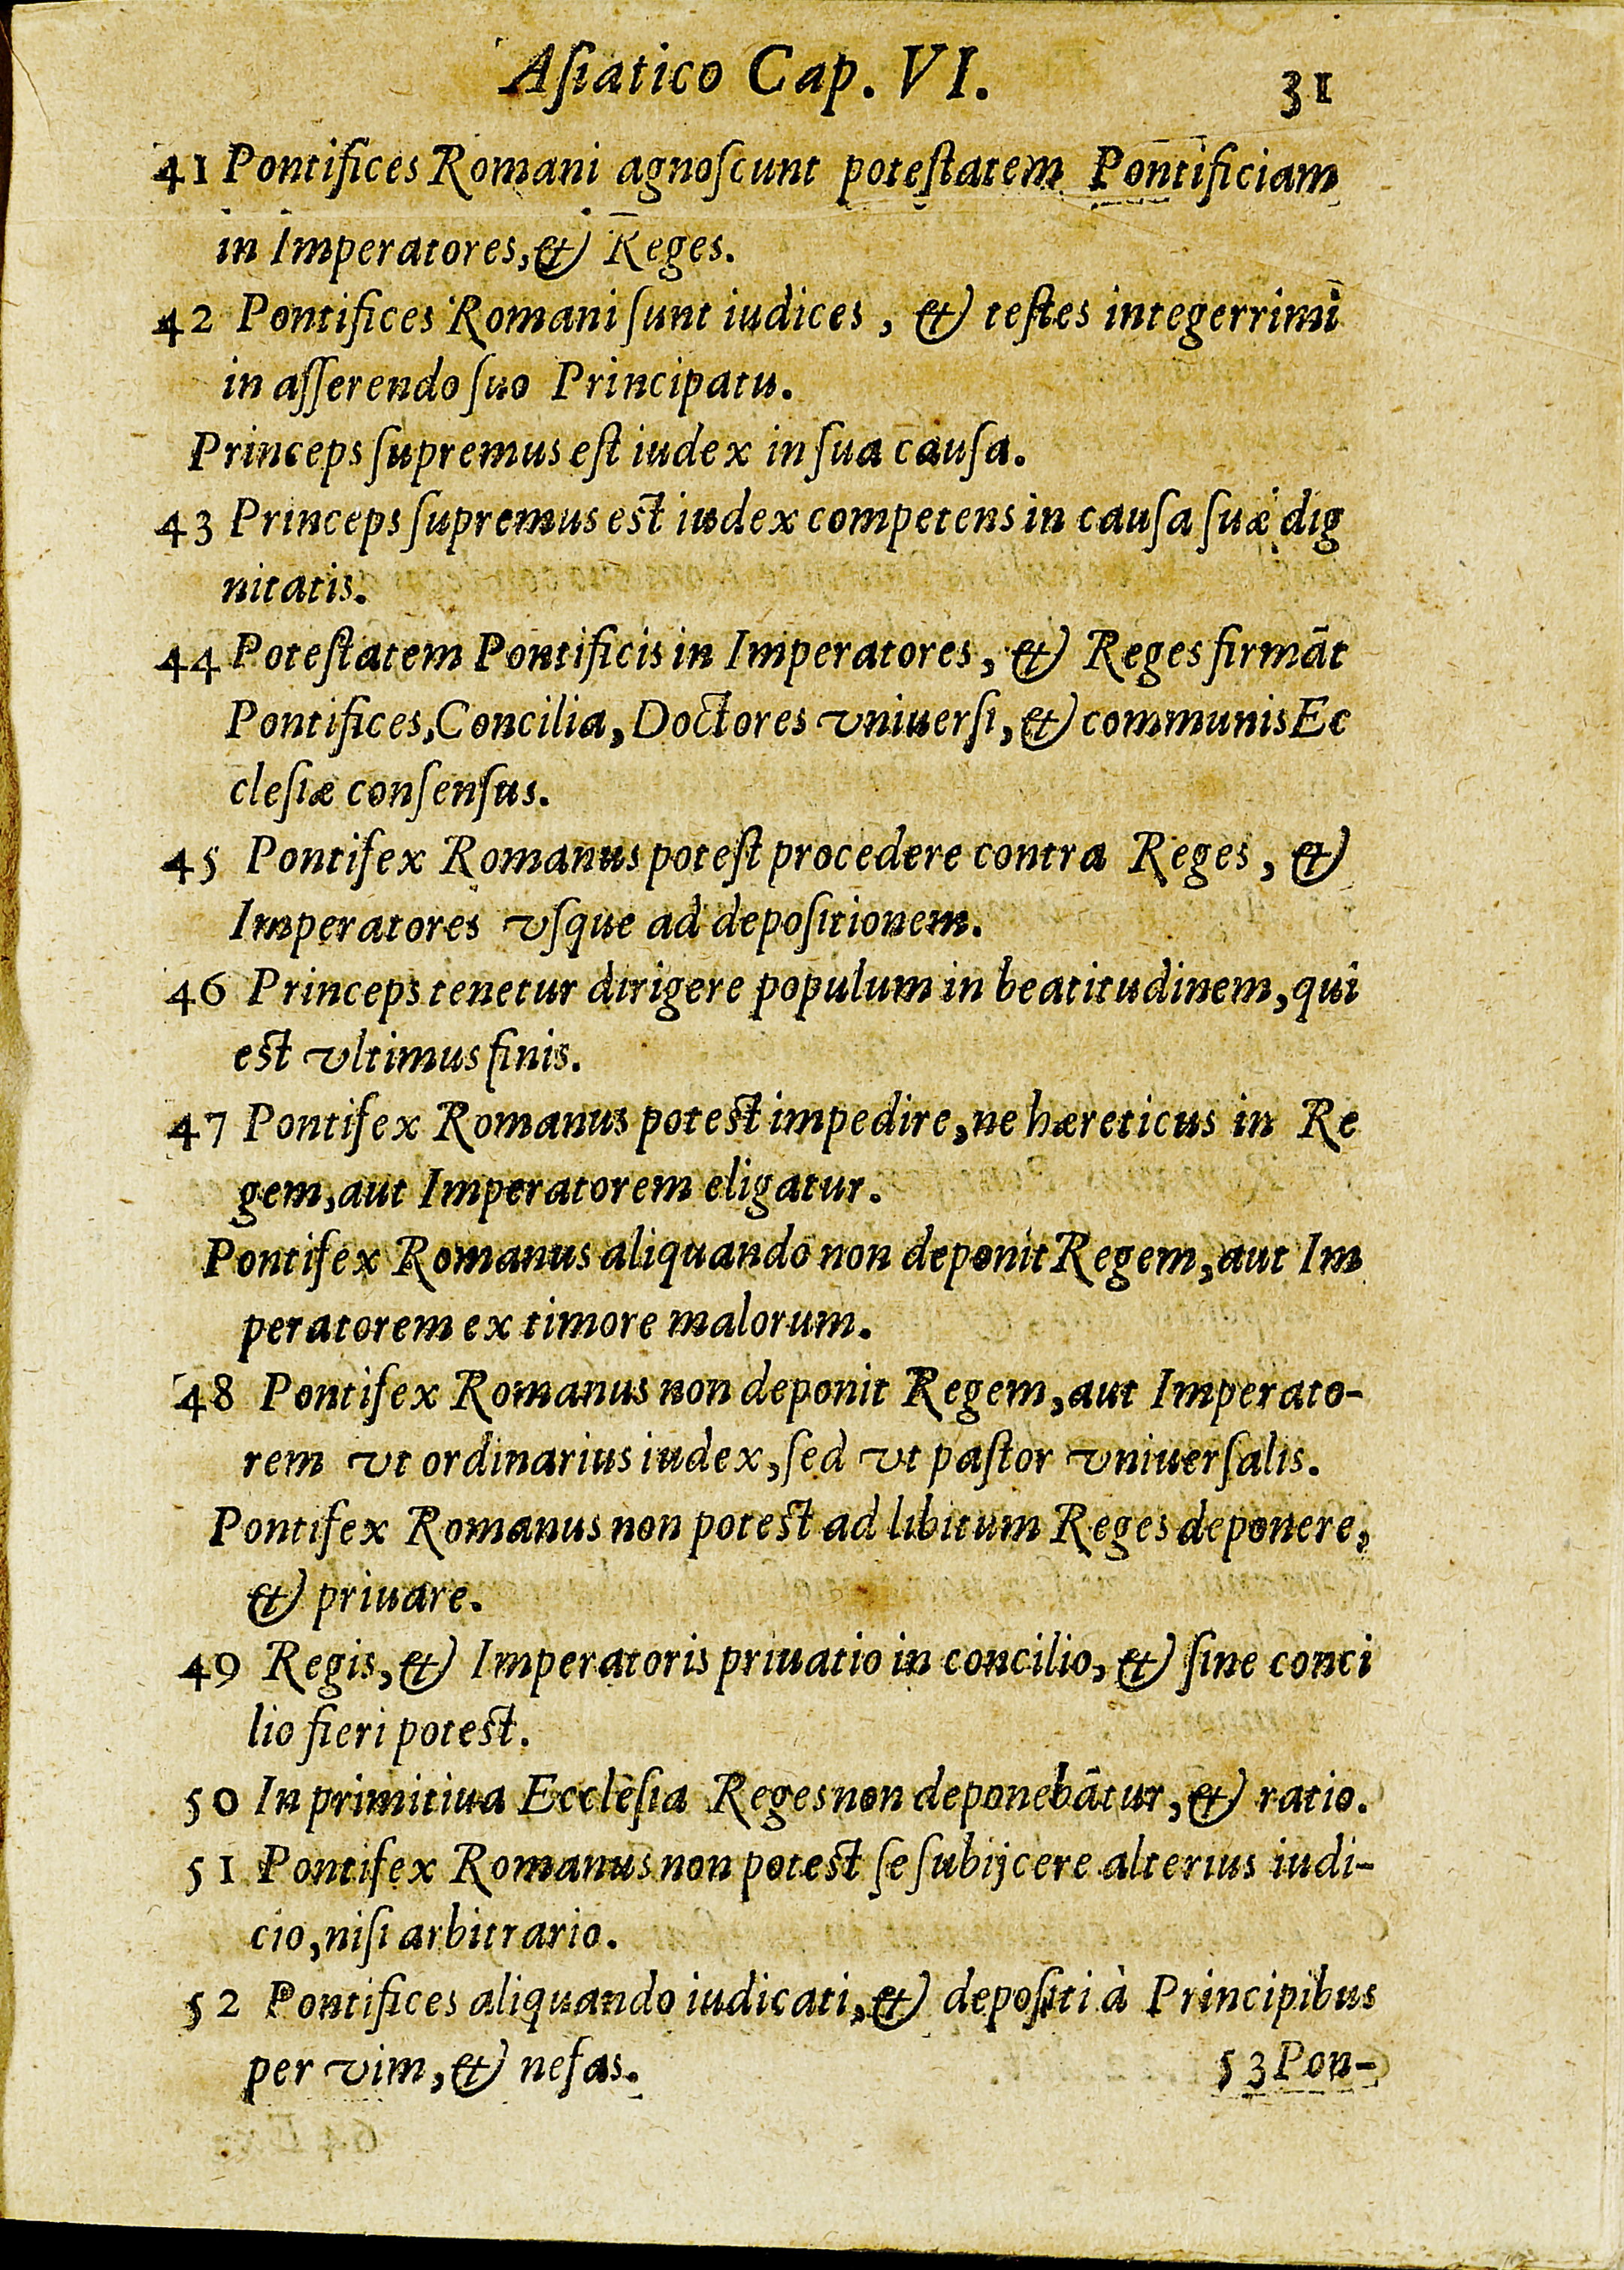 Aſiatico Cap. VI. 31
41 Pontifices Romani agnoſcunt poteſtatem Pontificiam
in Imperatores, & Reges.
42 Pontifices Romani ſunt iudices, & teſtes integerrimi
in aſſerendo ſuo Principatu.
Princeps ſupremus eſt iudex in ſua cauſa.
43 Princeps ſupremus eſt iudex competens in cauſa ſuæ dig
nitatis.
44 Poteſtatem Pontificis in Imperatores, & Reges firmāt
Pontifices, Concilia, Doctores vniuerſi, & communis Ec
cleſiæ conſenſus.
45 Pontifex Romanus poteſt procedere contra Reges, &
Imperatores vſque ad depoſitionem.
46 Princeps tenetur dirigere populum in beatitudinem, qui
eſt vltimus finis.
47 Pontifex Romanus poteſt impedire, ne hæreticus in Re
gem, aut Imperatorem eligatur.
Pontifex Romanus aliquando non deponit Regem, aut Im
peratorem ex timore malorum.
48 Pontifex Romanus non deponit Regem, aut Imperato-
rem vt ordinarius iudex, ſed vt paſtor vniuerſalis.
Pontifex Romanus non poteſt ad libitum Reges deponere,
& priuare.
49 Regis, & Imperatoris priuatio in concilio, & ſine conci
lio fieri poteſt.
50 In primitiua Eccleſia Reges non deponebātur, & ratio.
51 Pontifex Romanus non poteſt ſe ſubijcere alterius iudi-
cio, niſi arbitrario.
52 Pontifices aliquando iudicati, & depoſiti à Principibus
per vim, & nefas. 53 Pon-